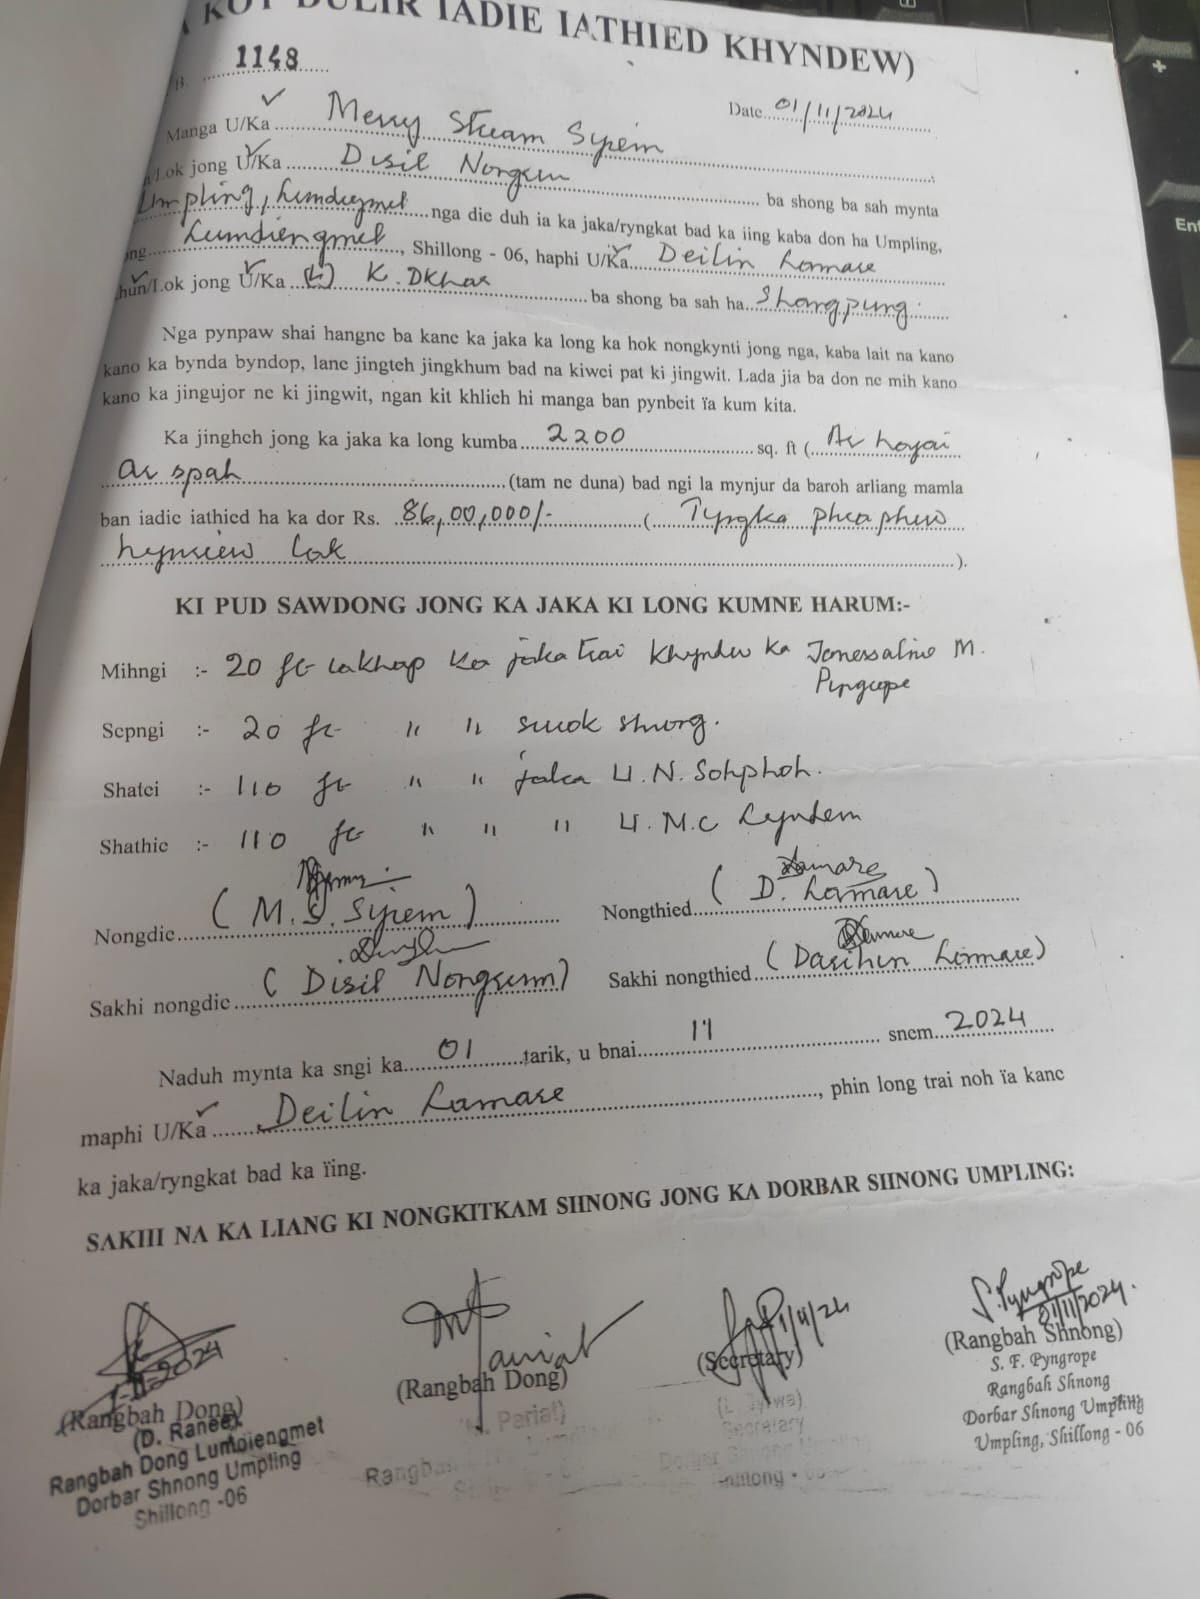 KOT DULIR IADIE IATHIED KHYNDEW)
B. 1148
Date 01/11/2024
Manga U/Ka Merry Stream Syiem
/Lok jong U/Ka Disil Nongrum ba shong ba sah mynta
Umpling, Lumdiengmet nga die duh ia ka jaka/ryngkat bad ka iing kaba don ha Umpling,
Lumdiengmet, Shillong - 06, haphi U/Ka Deilin Lamare
/Lok jong U/Ka (L) K. Dkhar ba shong ba sah ha Shangpung.
Nga pynpaw shai hangne ba kane ka jaka ka long ka hok nongkynti jong nga, kaba lait na kano
kano ka bynda byndop, lane jingteh jingkhum bad na kiwei pat ki jingwit. Lada jia ba don ne mih kano
kano ka jingujor ne ki jingwit, ngan kit khlieh hi manga ban pynbeit ïa kum kita.
Ka jingheh jong ka jaka ka long kumba 2200 sq. ft (Ar hajar
ar spah (tam ne duna) bad ngi la mynjur da baroh arliang mamla
ban iadie iathied ha ka dor Rs. 86,00,000/- (Tyngka phraphew
hynriew lak ).
KI PUD SAWDONG JONG KA JAKA KI LONG KUMNE HARUM:-
Mihngi :- 20 ft iakhap ka jaka trai khyndew ka M.
Pyngrope
Sepngi :- 20 ft " " surok shnong.
Shatei :- 110 ft " " jaka U. N. Sohphoh.
Shathie :- 110 ft " " " U. M.C Lyndem
Nongdie (M. S. Syiem) Nongthied (D. Lamare)
Sakhi nongdie (Disil Nongrum) Sakhi nongthied (Darihun Lamare)
Naduh mynta ka sngi ka 01 tarik, u bnai 11 snem 2024
maphi U/Ka Deilin Lamare, phin long trai noh ïa kane
ka jaka/ryngkat bad ka ïing.
SAKHI NA KA LIANG KI NONGKITKAM SHNONG JONG KA DORBAR SHNONG UMPLING:
1-11-2024
(Rangbah Dong)
(D. Ranee)
Rangbah Dong Lumdiengmet
Dorbar Shnong Umpling
Shillong -06
Pariat
(Rangbah Dong)
Pariat)
1/11/24
(Secretary)
Secretary
Shillong - 06
S. Pyngrope
01/11/2024.
(Rangbah Shnong)
S. F. Pyngrope
Rangbah Shnong
Dorbar Shnong Umpling
Umpling, Shillong - 06